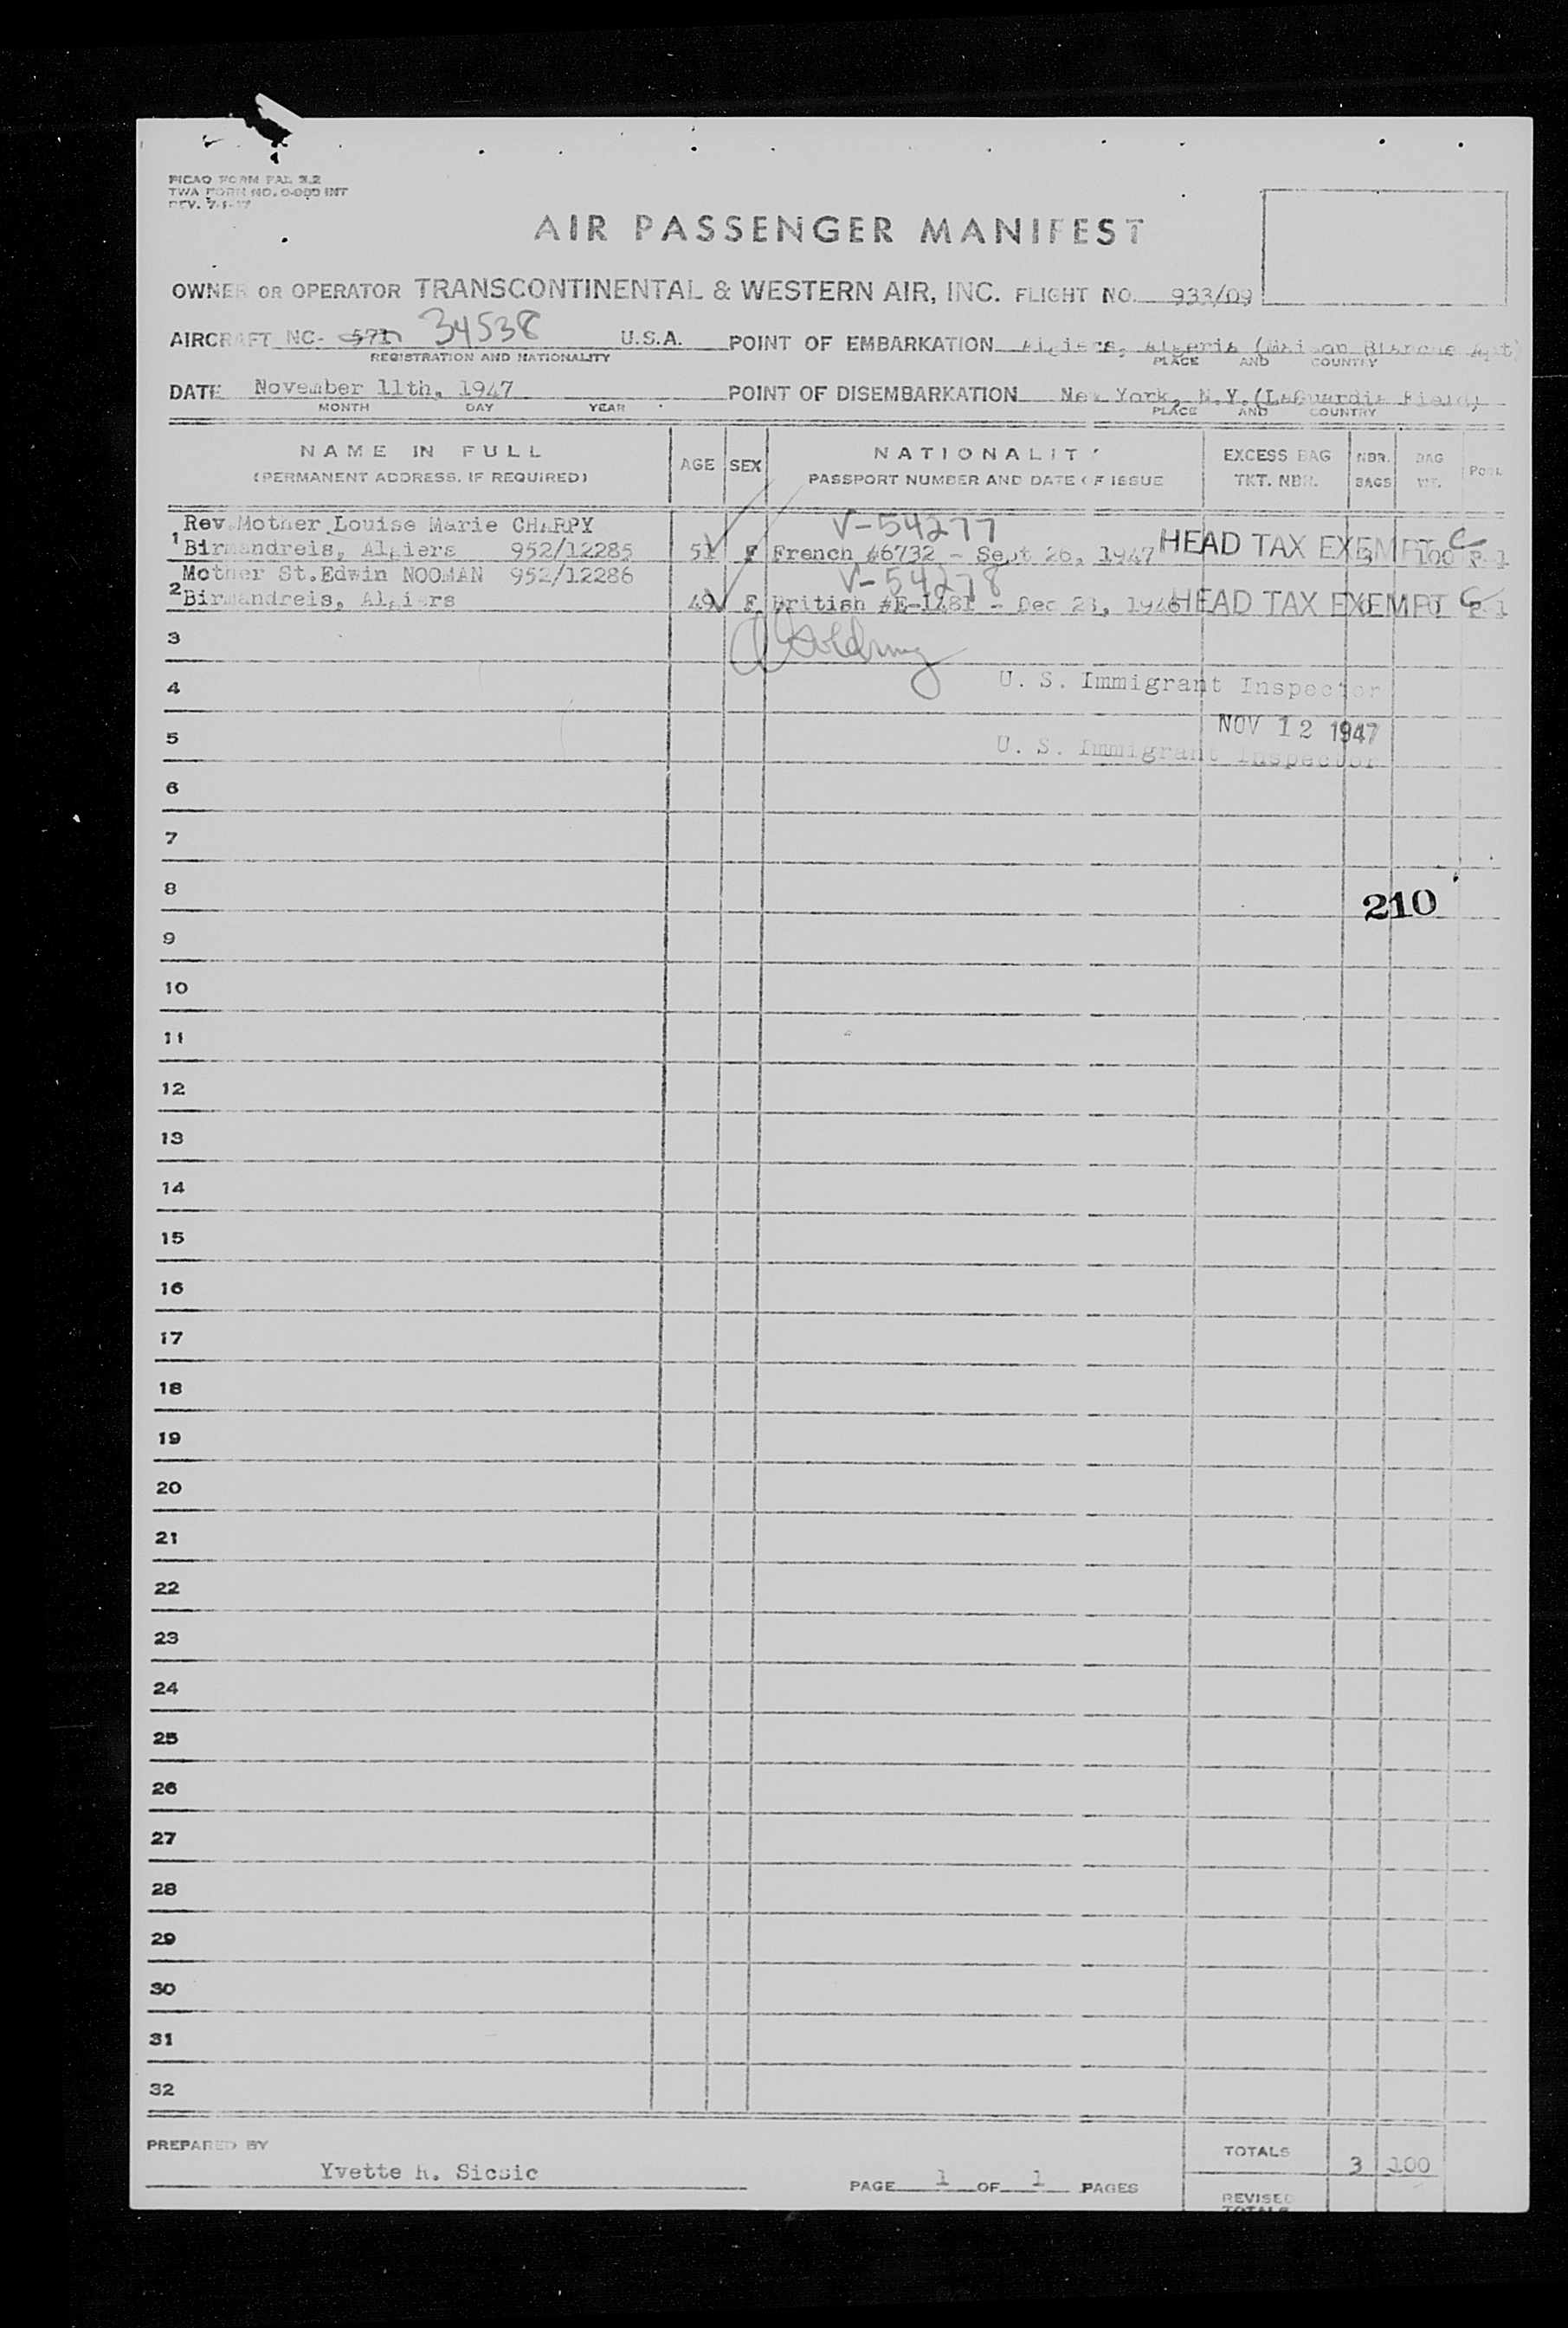 PICAO FORM FAL 3.2
TWA FORM NO. O-
REV.
AIR PASSENGER MANIFEST
OWNER OR OPERATOR TRANSCONTINENTAL & WESTERN AIR, INC. FLIGHT NO. 933/09
AIRCRAFT NC- 34538 U.S.A. POINT OF EMBARKATION Algiers, Algeria (Maison Blanche Apt)
REGISTRATION AND NATIONALITY PLACE AND COUNTRY
DATE November 11th, 1947 POINT OF DISEMBARKATION New York, N.Y.(LaGuardia Field)
MONTH DAY YEAR PLACE AND COUNTRY
NAME IN FULL AGE SEX NATIONALITY EXCESS BAG NBR. BAG
(PERMANENT ADDRESS, IF REQUIRED) PASSPORT NUMBER AND DATE OF ISSUE TKT. NBR. BAGS WT.
Rev.Mother Louise Marie CHARPY V-54277
1 Birmandreis, Algiers 952/12285 51 F French #6732 - Sept 26, 1947 HEAD TAX EXEMPT 3 100 C
Mother St.Edwin NOOMAN 952/12286 V-54278
2 Birmandreis, Algiers 49 F British - Dec 1946 HEAD TAX EXEMPT C
3
4 U. S. Immigrant Inspector
NOV 12 1947
5 U. S. Immigrant Inspector
6
7
8 210
9
10
11
12
13
14
15
16
17
18
19
20
21
22
23
24
25
26
27
28
29
30
31
32
PREPARED BY TOTALS 3 100
Yvette R. Sicsic
PAGE 1 OF 1 PAGES REVISED
TOTALS